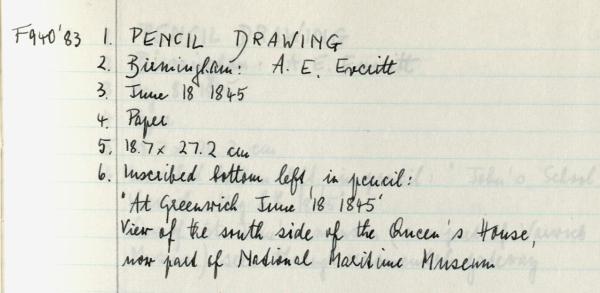 F940'83 1. PENCIL DRAWING
2. Birmingham: A. E. Everitt
3. June 18 1845
4. Paper
5. 18.7 x 27.2 cm
6. Inscribed bottom left, in pencil:
'At Greenwich June 18 1845'
View of the south side of the Queen's House,
now part of National Maritime Museum